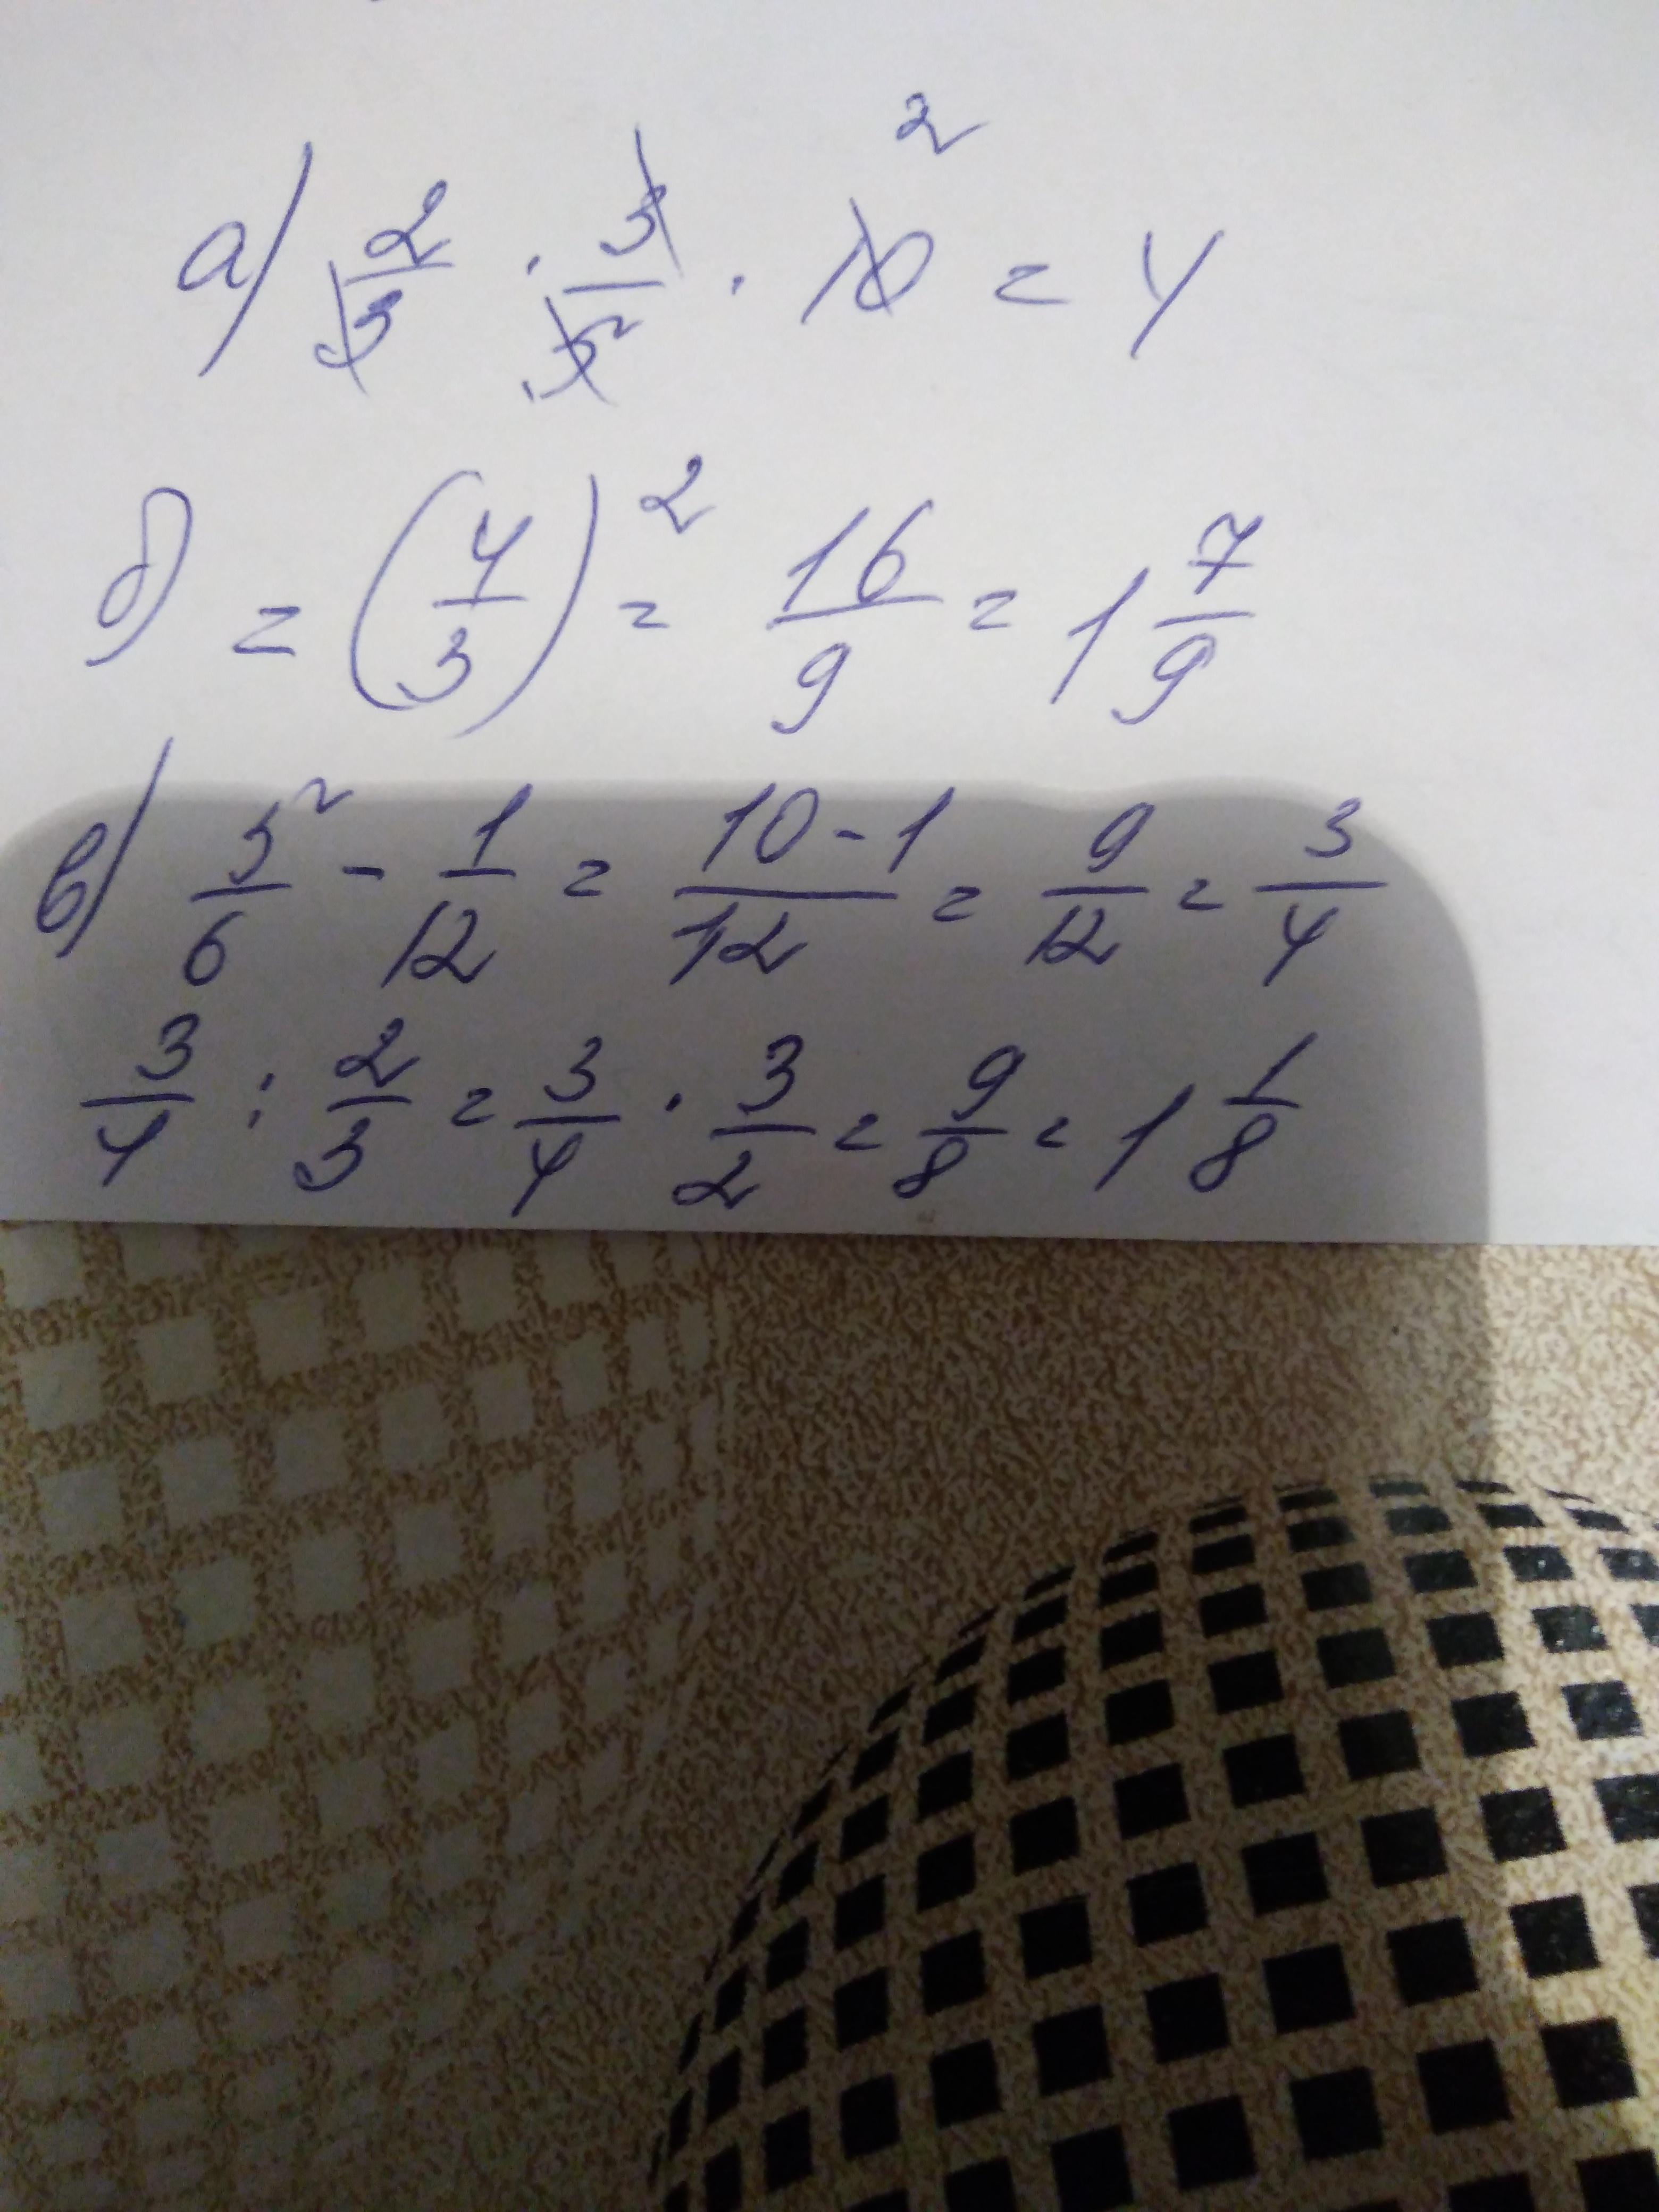 а) 2/3 · 3/5 · 10 ² = 4
б) = (4/3)² = 16/9 = 1 7/9
в) 5²/6 - 1/12 = 10-1/12 = 9/12 = 3/4
3/4 : 2/3 = 3/4 · 3/2 = 9/8 = 1 1/8